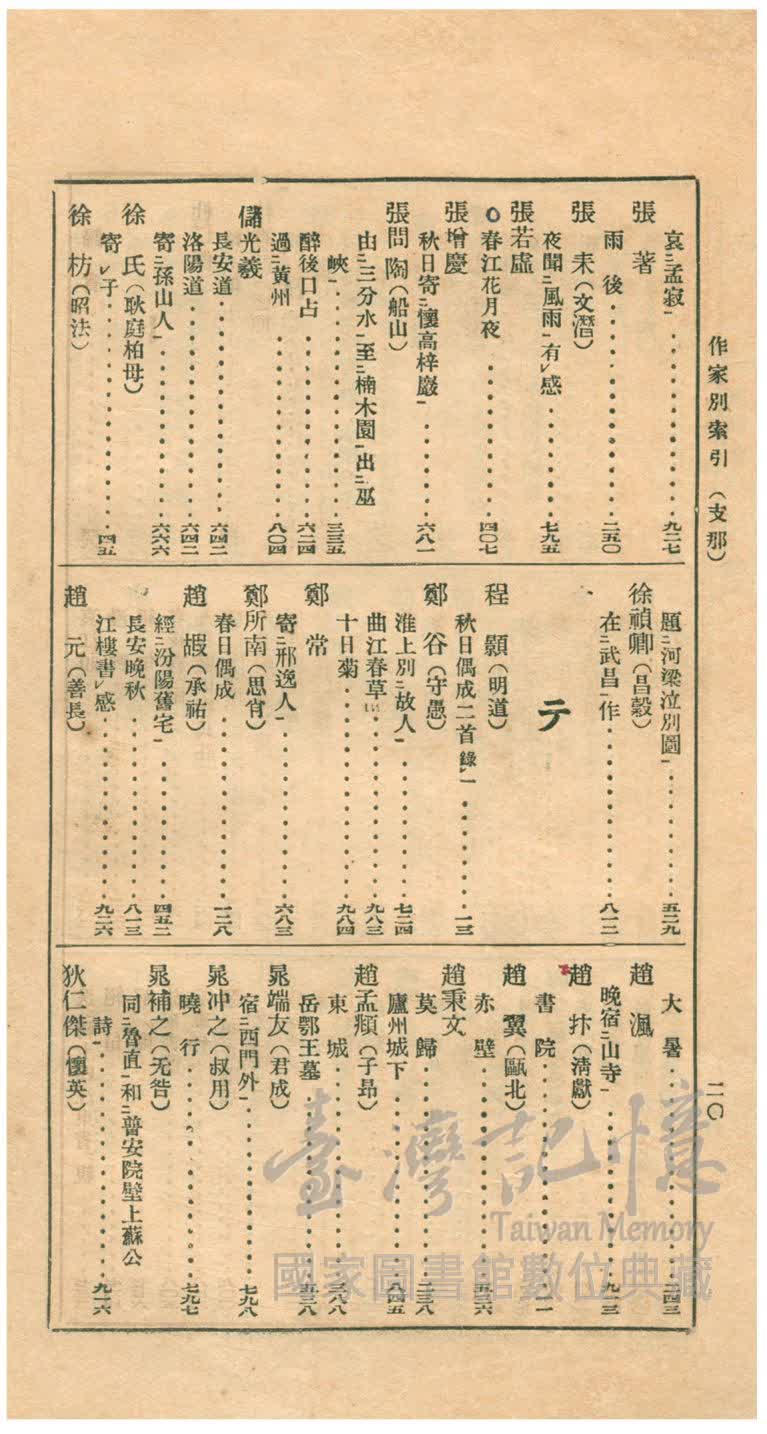 作家別索引（支那）
二〇
哀二孟寂一……九二七
張著
雨後……二五〇
張耒（文潛）
夜聞二風雨一有レ感……七九五
張若虛
春江花月夜……四〇七
張增慶
秋日寄二懷高梓巖一……六八一
張問陶（船山）
由二三分水一至二楠木園一出二巫
峽一……三三五
過二黃州一……八〇四
醉後口占……六二四
儲光羲
長安道……六四二
洛陽道……六四二
寄二孫山人一……六六六
徐氏（耿庭柏母）
寄レ子……四五
徐枋（昭法）
題二河梁泣別圖一……五二九
徐禎卿（昌穀）
在二武昌一作……八一二
テ
程顥（明道）
秋日偶成二首錄レ一……一三
鄭谷（守愚）
淮上別二故人一……七二四
曲江春草……九八三
十日菊……九八四
鄭常
寄二邢逸人一……六八三
鄭所南（思肖）
春日偶成……一二八
趙嘏（承祐）
經二汾陽舊宅一……四五二
長安晚秋……八一三
江樓書レ感……九二六
趙元（善長）
大暑……二四三
趙渢
晚宿二山寺一……九一三
趙抃（清獻）
書院
趙翼（甌北）
赤壁……五三六
趙秉文
莫歸……二三八
廬州城下……八四五
趙孟頫（子昂）
東城……二八八
岳鄂王墓……五三八
晁端友（君成）
宿二西門外一……七九八
晁冲之（叔用）
曉行……七九七
晁補之（无咎）
同二魯直一和二普安院壁上蘇公
詩一……九一六
狄仁傑（懷英）
臺灣記憶
Taiwan Memory
國家圖書館數位典藏